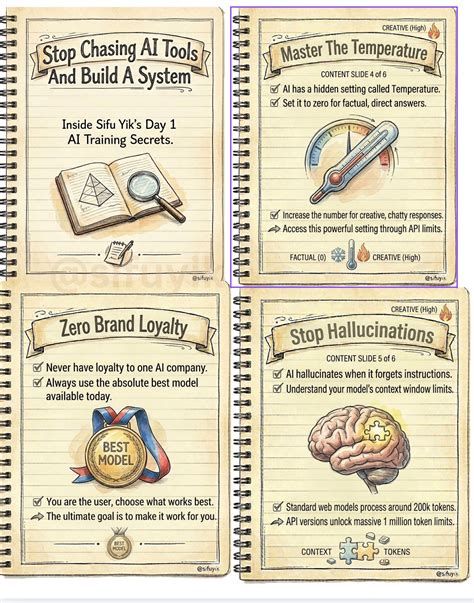 Stop Chasing AI Tools
And Build A System
Inside Sifu Yik's Day 1
AI Training Secrets.
@sifuyik
@sifuyik
CREATIVE (High)
Master The Temperature
CONTENT SLIDE 4 of 6
AI has a hidden setting called Temperature.
Set it to zero for factual, direct answers.
Increase the number for creative, chatty responses.
Access this powerful setting through API limits.
FACTUAL (0)
CREATIVE (High)
@sifuyik
Zero Brand Loyalty
Never have loyalty to one AI company.
Always use the absolute best model
available today.
BEST
MODEL
You are the user, choose what works best.
The ultimate goal is to make it work for you.
BEST
MODEL
@sifuyik
CREATIVE (High)
Stop Hallucinations
CONTENT SLIDE 5 of 6
AI hallucinates when it forgets instructions.
Understand your model's context window limits.
Standard web models process around 200k tokens.
API versions unlock massive 1 million token limits.
CONTEXT
TOKENS
@sifuyik